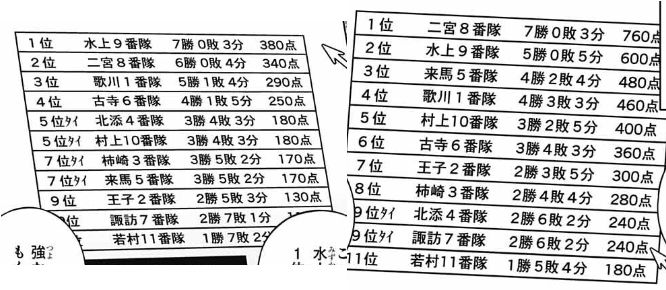 1位 水上9番隊 7勝0敗3分 380点
2位 二宮8番隊 6勝0敗4分 340点
3位 歌川1番隊 5勝1敗4分 290点
4位 古寺6番隊 4勝1敗5分 250点
5位タイ 北添4番隊 3勝4敗3分 180点
5位タイ 村上10番隊 3勝4敗3分 180点
7位タイ 柿崎3番隊 3勝5敗2分 170点
7位タイ 来馬5番隊 3勝5敗2分 170点
9位 王子2番隊 2勝5敗3分 130点
位 諏訪7番隊 2勝7敗1分
若村11番隊 1勝7敗2分
強
も
こ
水
1
1位 二宮8番隊 7勝0敗3分 760点
2位 水上9番隊 5勝0敗5分 600点
3位 来馬5番隊 4勝2敗4分 480点
4位 歌川1番隊 4勝3敗3分 460点
5位 村上10番隊 3勝2敗5分 400点
6位 古寺6番隊 3勝4敗3分 360点
7位 王子2番隊 2勝3敗5分 300点
8位 柿崎3番隊 2勝4敗4分 280点
9位タイ 北添4番隊 2勝6敗2分 240点
9位タイ 諏訪7番隊 2勝6敗2分 240点
11位 若村11番隊 1勝5敗4分 180点